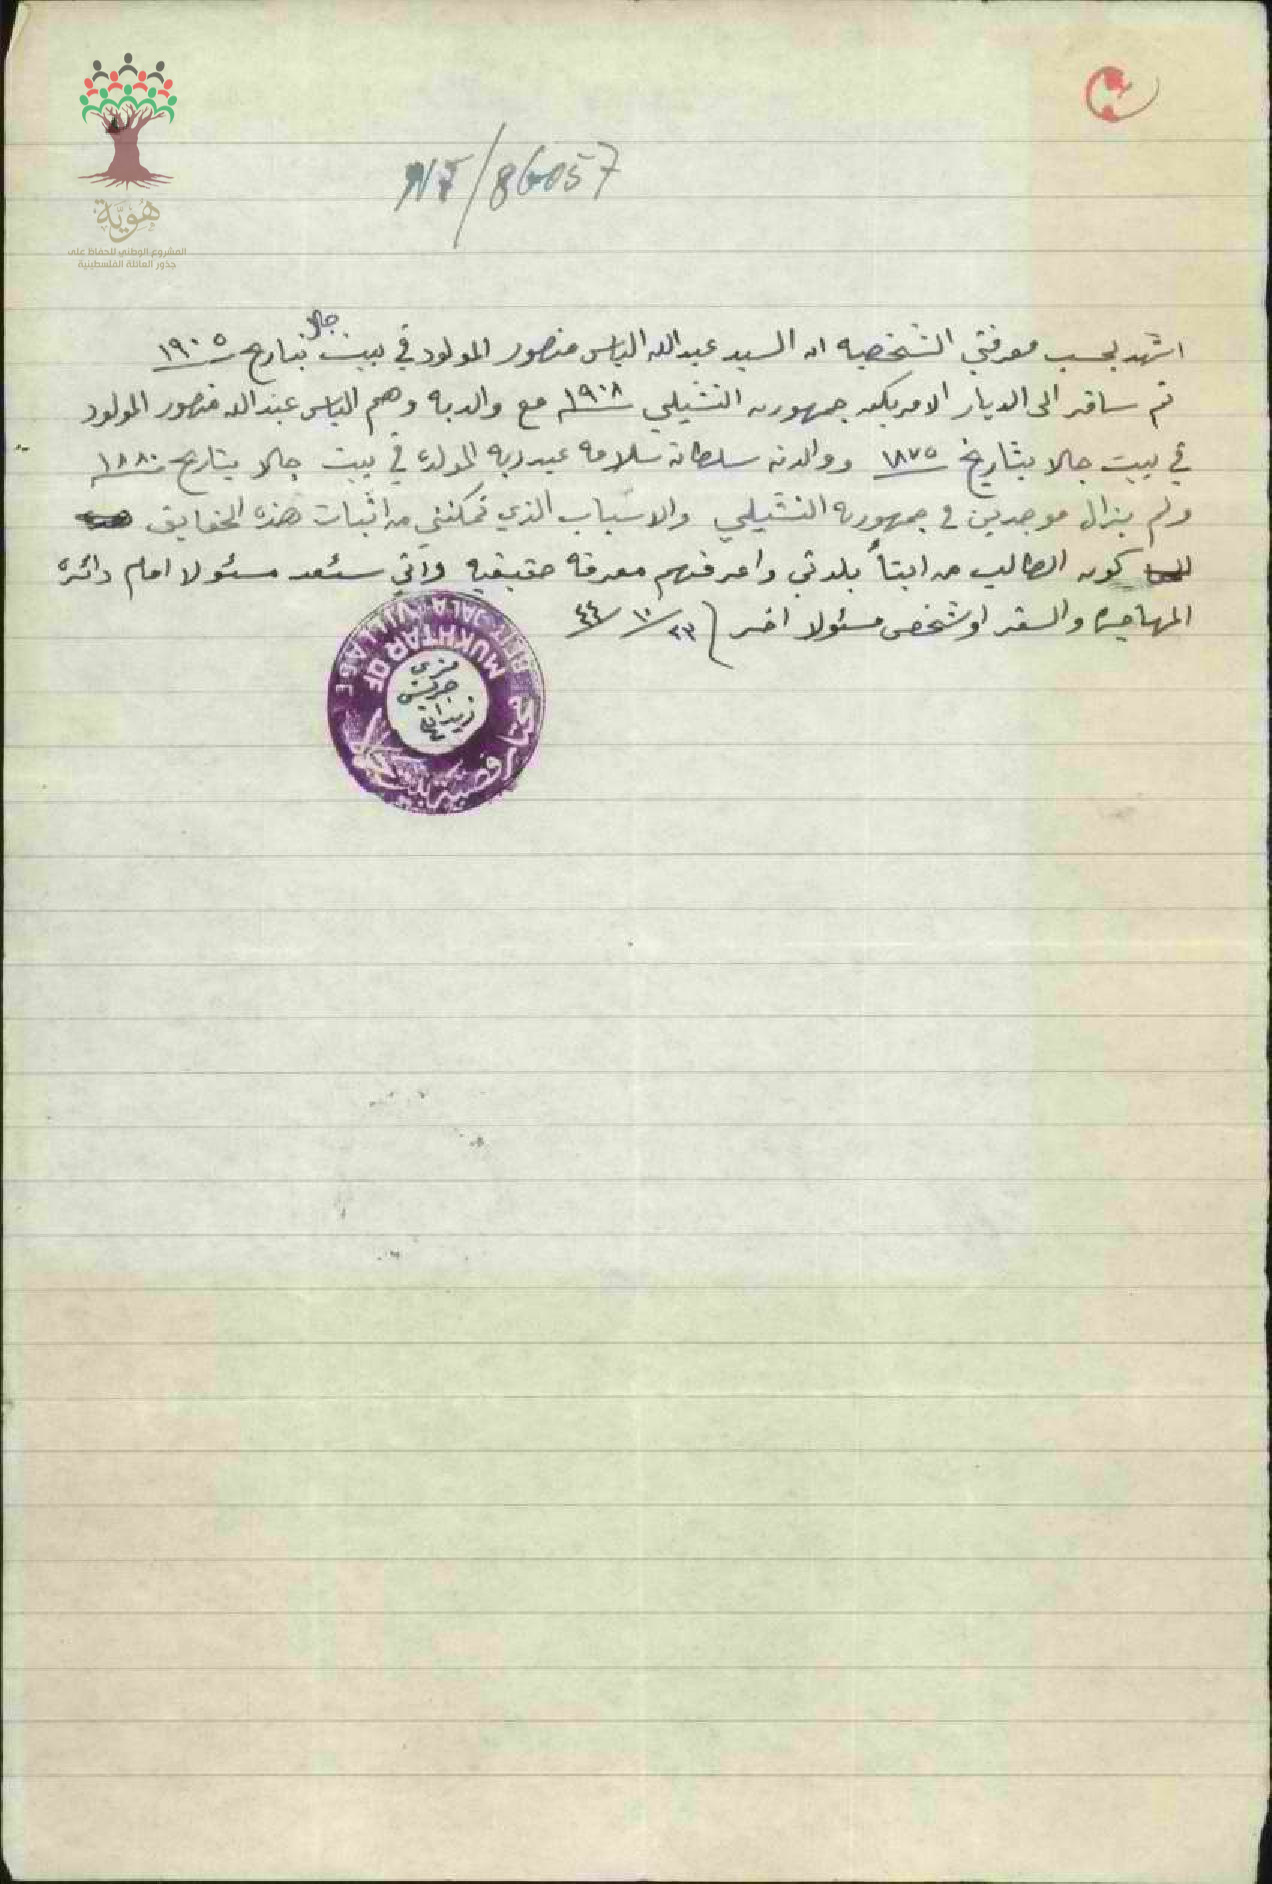 هُوِيَّة
المشروع الوطني للحفاظ على
جذور العائلة الفلسطينية
NF/86057
اشهد بحسب معرفتي الشخصيه ان السيد عبدالله الياس منصور المولود في بيت جالا بتاريخ ١٩٠٥
ثم سافر الى الديار الامريكيه جمهورية التشيلي ١٩٠٨ مع والديه وهم الياس عبدالله منصور المولود
في بيت جالا بتاريخ ١٨٧٥ ووالدته سلطانه سلامه عبدربه المولده في بيت جالا بتاريخ ١٨٨٠
ولم يزال موجدين في جمهورية التشيلي والاسباب الذي تمكنني من اثبات هذه الحقايق
كون الطالب من ابناء بلدتي واعرفهم معرفه حقيقيه واني ستعد مسئولا امام دائرة
المهاجره والسفر او شخص مسئولا اخر ٢٣/١٠/٤٤
MUKHTAR OF
BEIT JALA VILLAGE
جريس
زيدان